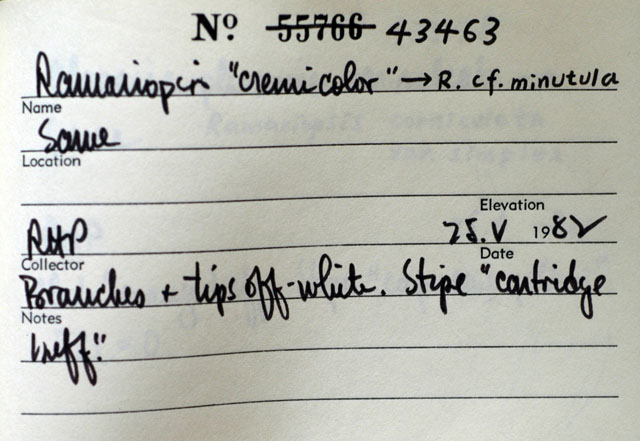 Nº 55766 43463
Ramariopsis "cremicolor" → R. cf. minutula
Name
Same
Location
Elevation
RHP 25.V 1982
Collector Date
Branches + tips off-white. Stipe "cartridge
Notes
buff."